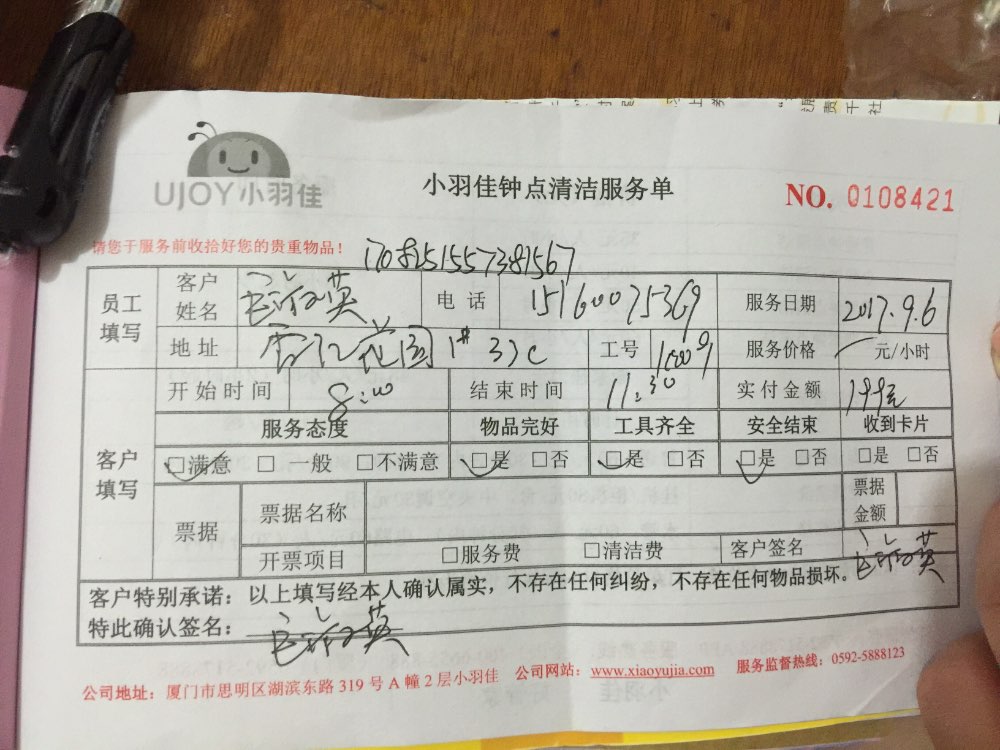 UJOY小羽佳
小羽佳钟点清洁服务单
NO. 0108421
请您于服务前收拾好您的贵重物品！
员工填写
客户姓名
电话 15160075369
服务日期 2017.9.6
地址 花园 1# 33C
工号
服务价格 元/小时
客户填写
开始时间 8:00
结束时间 11:30
实付金额 199元
服务态度 物品完好 工具齐全 安全结束 收到卡片
□满意 □一般 □不满意 □是 □否 □是 □否 □是 □否 □是 □否
票据
票据名称
票据金额
开票项目 □服务费 □清洁费 客户签名
客户特别承诺：以上填写经本人确认属实，不存在任何纠纷，不存在任何物品损坏。
特此确认签名：
公司地址：厦门市思明区湖滨东路 319 号 A 幢 2 层小羽佳 公司网站：www.xiaoyujia.com 服务监督热线：0592-5888123